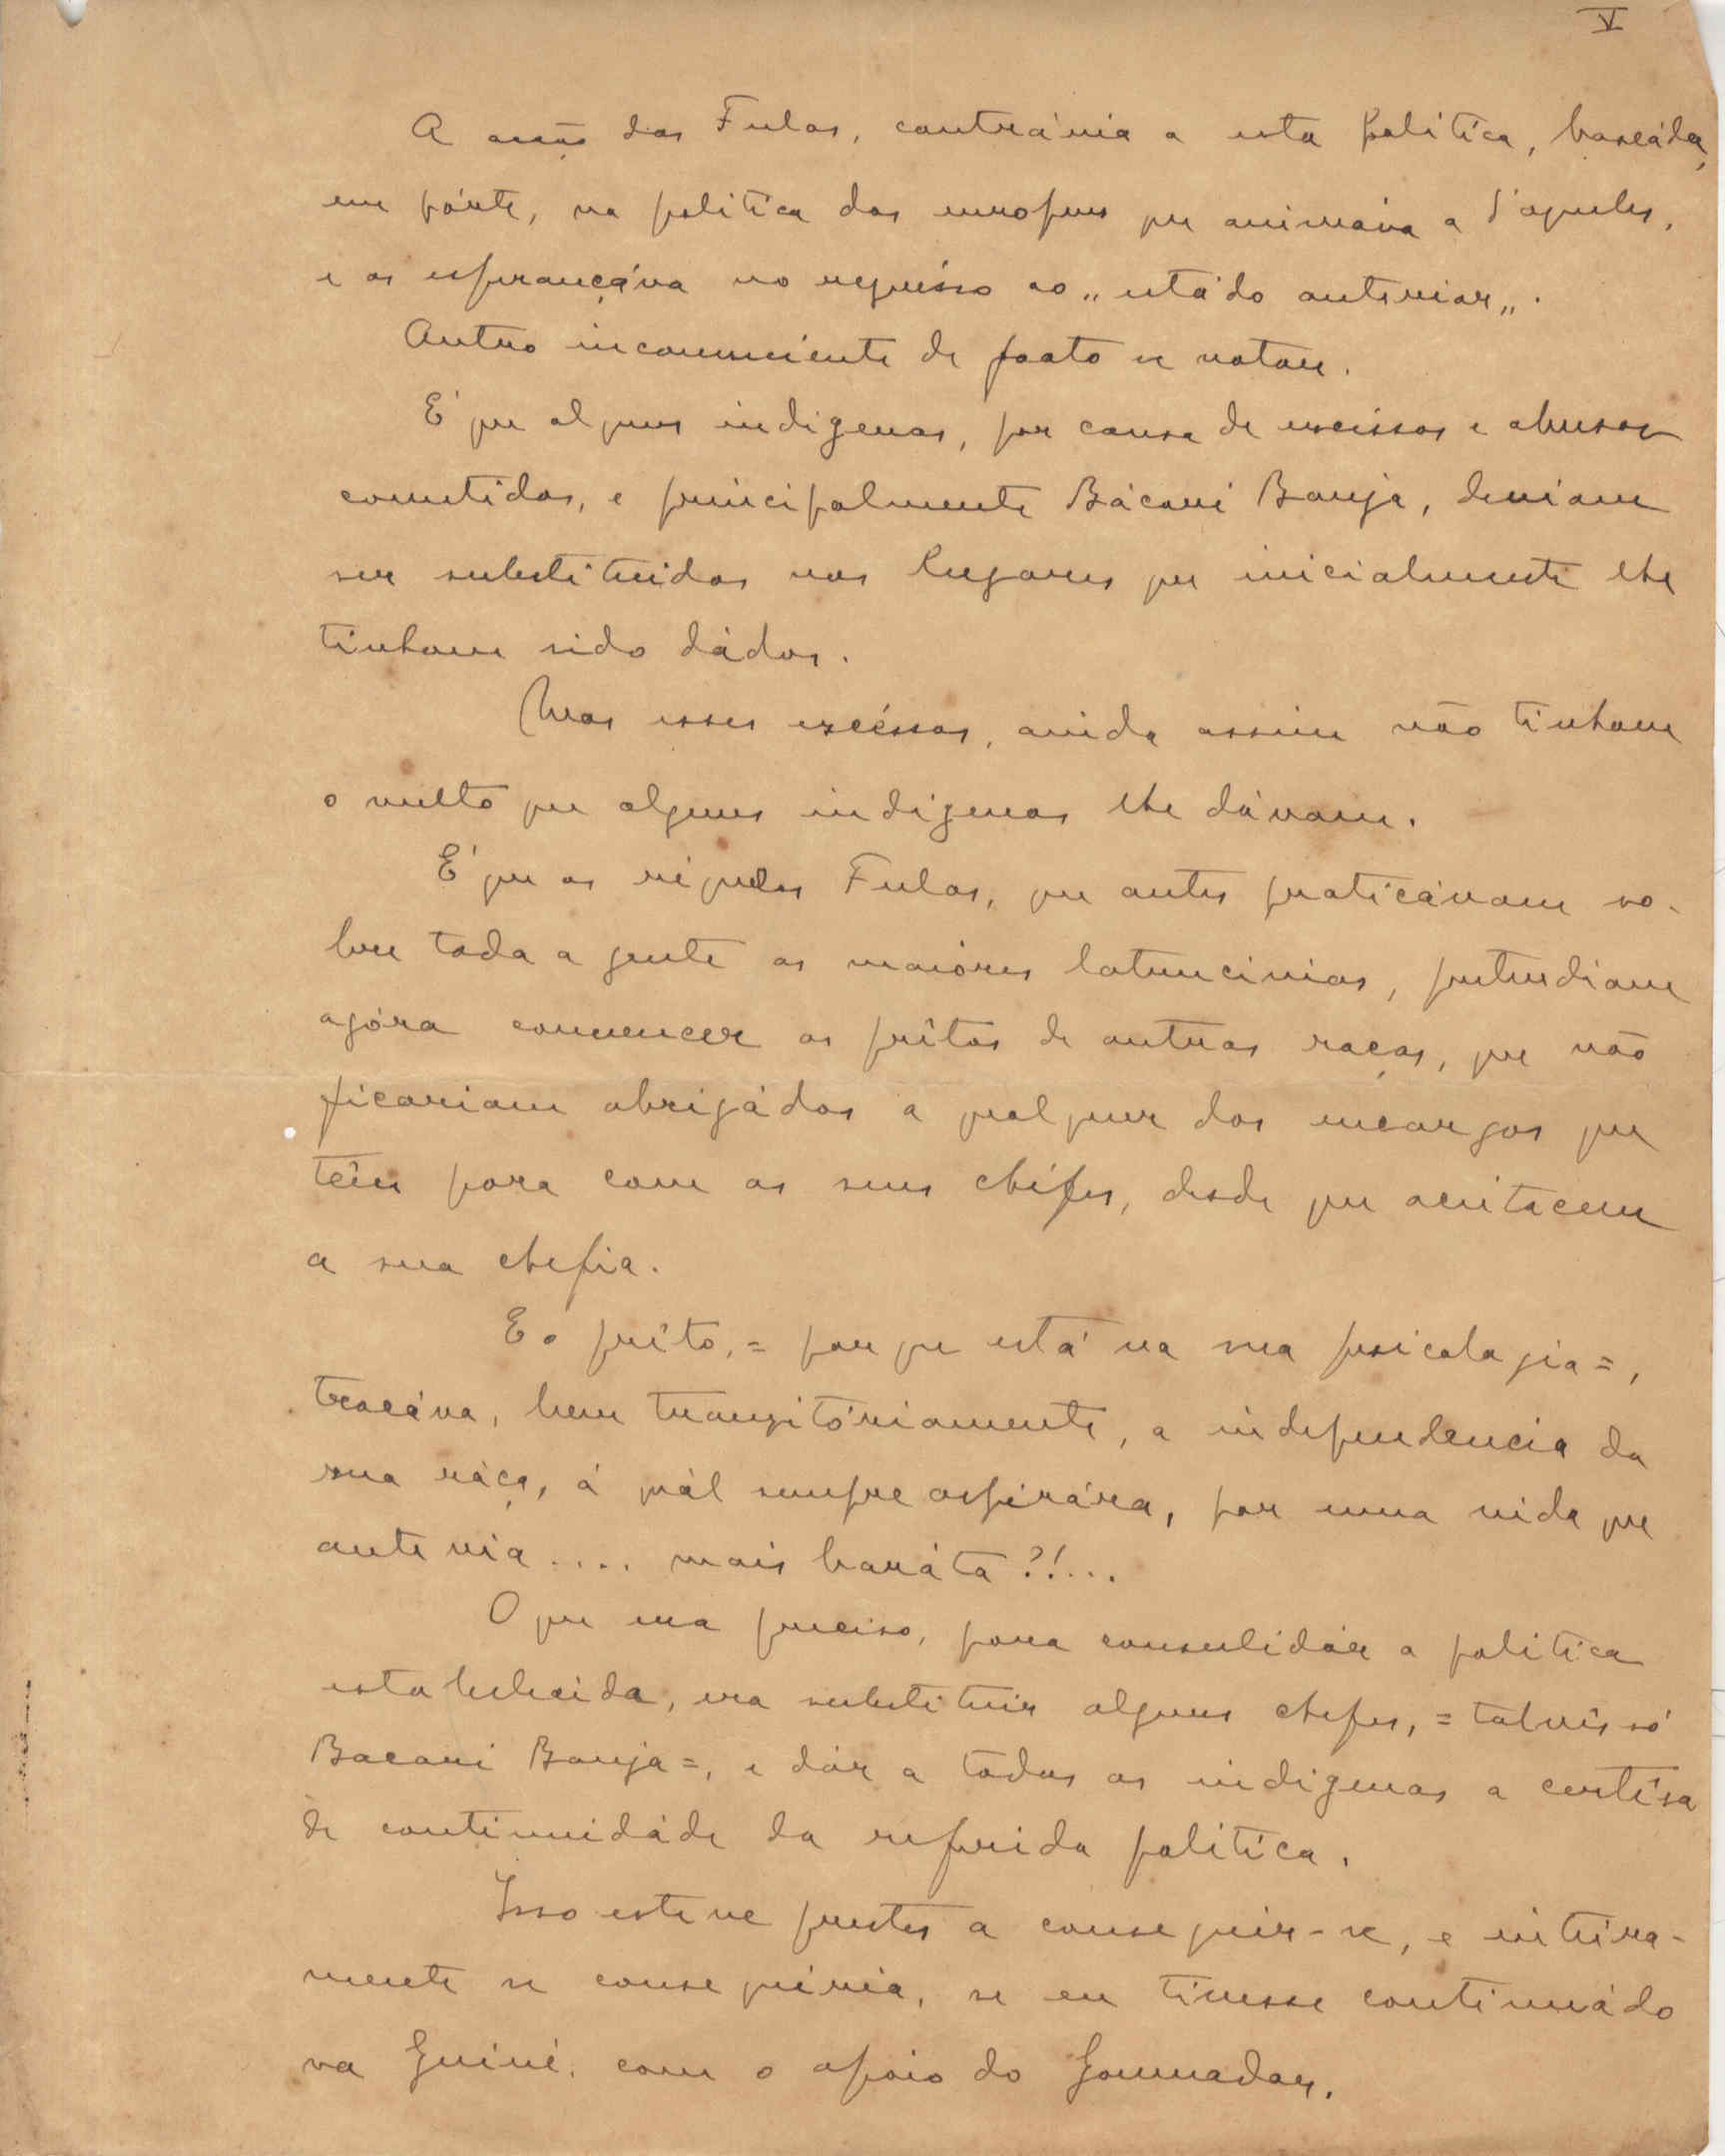 V
A acção dos Fulas, contrária a esta politica, baseáda,
em párte, na politica dos europeus que animáva a d'aqueles,
e os esperançáva no regrésso ao „estádo anterior„.
Outro inconveniente de facto se notou.
E' que alguns indigenas, por causa de excéssos e abusos
cometidos, e principalmente Bácari Banja, deviam
ser substituidos nos lugares que inicialmente lhe
tinham sido dádos.
Mas esses excéssos, ainda assim não tinham
o vulto que alguns indigenas lhe dávam.
E' que os régulos Fulas, que antes praticávam so-
bre toda a gente os maióres latrucinios, pretendiam
agóra convencer os prêtos de outras raças, que não
ficariam obrigádos a qualquer dos encargos que
têm para com os seus chéfes, desde que aceitacem
a sua chefia.
E o prêto, = porque está na sua psicologia =,
trocáva, bem tranzitóriamente, a independencia da
sua ráça, á quál sempre aspirára, por uma vida que
antevia .... mais baráta ?!...
O que era preciso, para consulidár a politica
estabelecida, era substituir alguns chefes, = talvês só
Bacari Banja =, e dár a todos os indigenas a certêsa
de continuidáde da referida politica.
Isso esteve prestes a conseguir-se, e inteira-
mente se conseguiria, se eu tivesse continuádo
na Guiné, com o apoio do Governador.